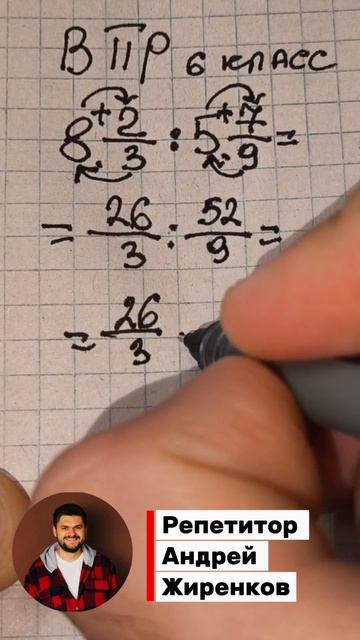 ВПР 6 КЛАСС
8 2/3 : 5 7/9 =
= 26/3 : 52/9 =
= 26/3
Репетитор
Андрей
Жиренков